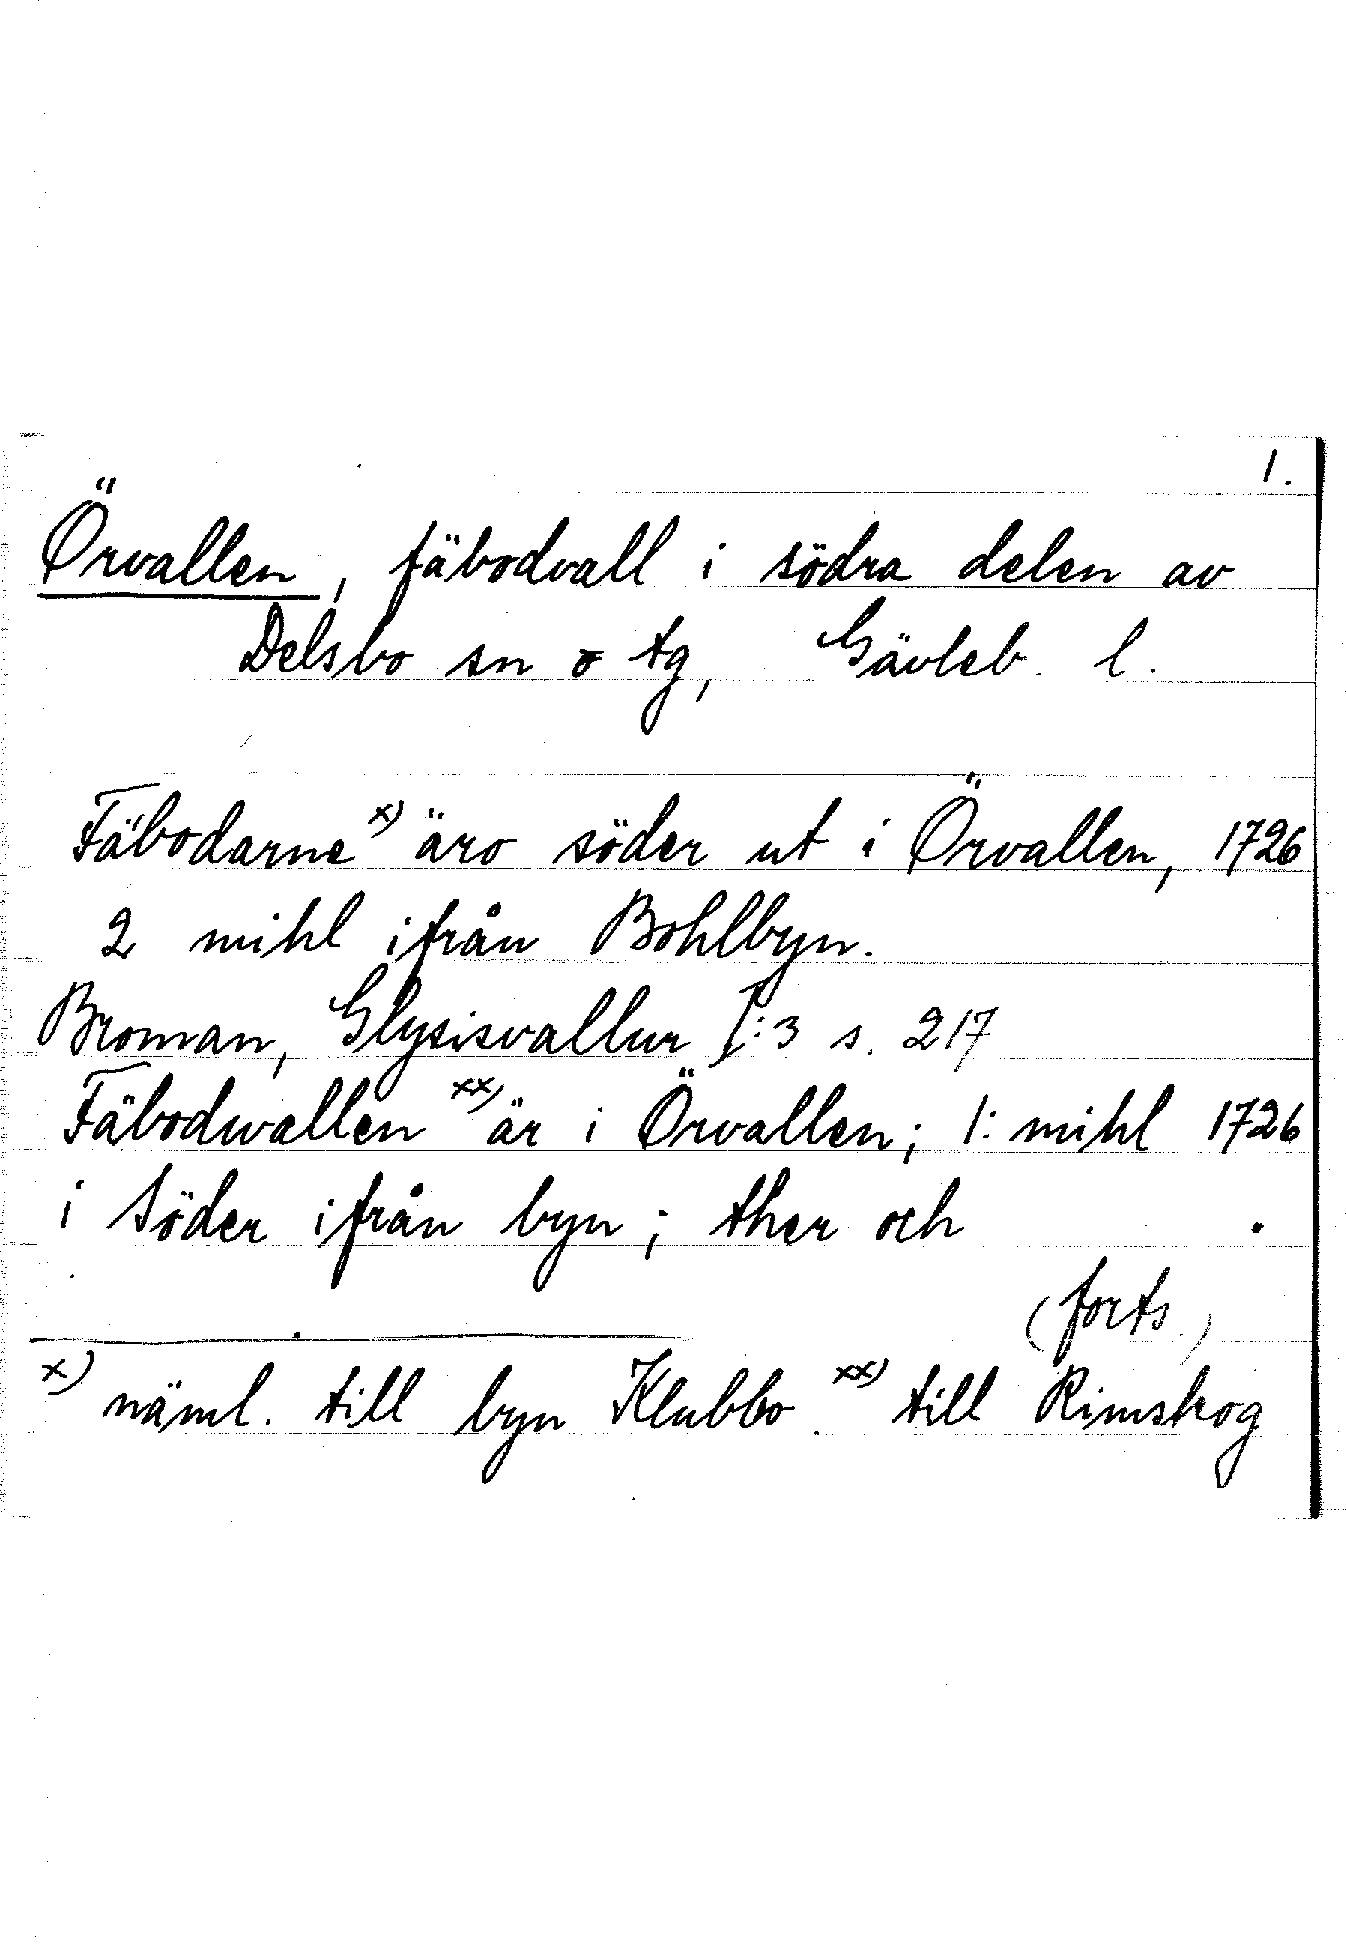 1.
Örvallen, fäbodvall i södra delen av
Delsbo sn o tg, Gävleb. l.
Fäbodarne x) äro söder ut i Örvallen, 1726
2 mihl ifrån Bohlbyn.
Broman, Glysisvallur I:3 s. 217
Fäbodwallen xx) är i Örvallen; 1: mihl 1726
i Söder ifrån byn; ther och
(forts.)
x) näml. till byn Klubbo. xx) till Rimskog